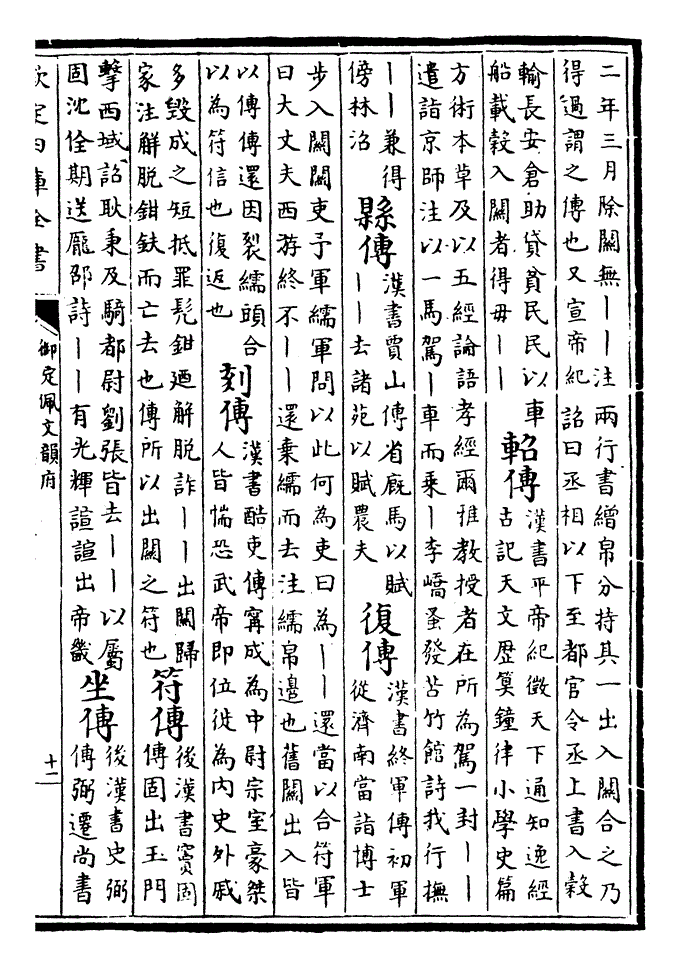 二年三月除關無——注兩行書繒帛分持其一出入關合之乃
得過謂之傳也又宣帝紀詔曰丞相以下至都官令丞上書入穀
輸長安倉助貸貧民民以車
船載穀入關者得毋——
軺傳
漢書平帝紀徵天下通知逸經
古記天文歴算鐘律小學史篇
方術本草及以五經論語孝經爾雅教授者在所為駕一封——
遣詣京師注以一馬駕—車而乘—李嶠蚤發苦竹館詩我行撫
——兼得
傍林沼
縣傳
漢書賈山傳省廐馬以賦
——去諸苑以賦農夫
復傳
漢書終軍傳初軍
從濟南當詣博士
步入關關吏予軍繻軍問以此何為吏曰為——還當以合符軍
曰大丈夫西游終不——還棄繻而去注繻帛邊也舊關出入皆
以傳傳還因裂繻頭合
以為符信也復返也
刻傳
漢書酷吏傳甯成為中尉宗室豪桀
人皆惴恐武帝即位徙為内史外戚
多毀成之短抵罪髠鉗廼解脱詐——出關歸
家注解脱鉗釱而亡去也傳所以出關之符也
符傳
後漢書竇固
傳固出玉門
擊西域詔耿秉及騎都尉劉張皆去——以屬
固沈佺期送龎邵詩——有光輝諠諠出帝畿
坐傳
後漢書史弼
傳弼遷尚書
欽定四庫全書
御定佩文韻府
十二